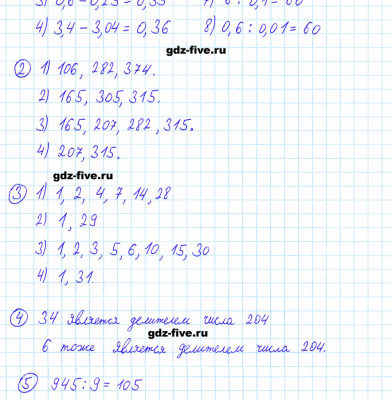 3) 0,6 - 0,25 = 0,35 7) 6 : 0,1 = 60
4) 3,4 - 3,04 = 0,36 8) 0,6 : 0,01 = 60
gdz-five.ru
2 1) 106, 282, 374.
2) 165, 305, 315.
3) 165, 207, 282, 315.
4) 207, 315.
gdz-five.ru
3 1) 1, 2, 4, 7, 14, 28
2) 1, 29
3) 1, 2, 3, 5, 6, 10, 15, 30
4) 1, 31
4 34 является делителем числа 204
gdz-five.ru
6 тоже является делителем числа 204.
5 945 : 9 = 105